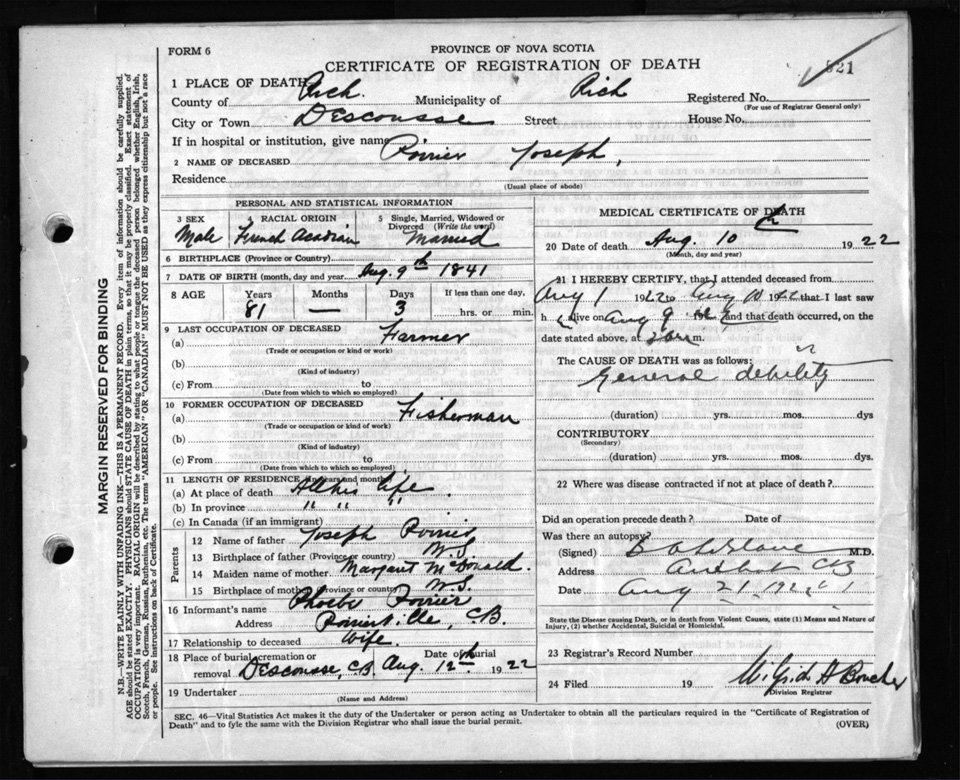 FORM 6
PROVINCE OF NOVA SCOTIA
CERTIFICATE OF REGISTRATION OF DEATH
821
1 PLACE OF DEATH
County of Rich. Municipality of Rich
Registered No.
(For use of Registrar General only)
City or Town Descousse Street House No.
If in hospital or institution, give name
2 NAME OF DECEASED Poirier Joseph,
Residence
(Usual place of abode)
PERSONAL AND STATISTICAL INFORMATION
3 SEX Male
4 RACIAL ORIGIN French Acadian
5 Single, Married, Widowed or Divorced (Write the word) Married
6 BIRTHPLACE (Province or Country)
7 DATE OF BIRTH (month, day and year) Aug. 9th 1841
8 AGE Years 81 Months — Days 3 If less than one day, hrs. or min.
9 LAST OCCUPATION OF DECEASED
(a) Farmer
(Trade or occupation or kind or work)
(b)
(Kind of industry)
(c) From to
(Date from which to which so employed)
10 FORMER OCCUPATION OF DECEASED
(a) Fisherman
(Trade or occupation or kind of work)
(b)
(Kind of industry)
(c) From to
(Date from which to which so employed)
11 LENGTH OF RESIDENCE (in years and months)
(a) At place of death All his life.
(b) In province " " "
(c) In Canada (if an immigrant)
Parents
12 Name of father Joseph Poirier
13 Birthplace of father (Province or country) N.S.
14 Maiden name of mother Margaret McDonald.
15 Birthplace of mother (Province or country) N.S.
16 Informant's name Phoebe Poirier
Address Poirierville, C.B.
17 Relationship to deceased Wife
18 Place of burial, cremation or removal Descousse, C.B. Date of burial Aug. 12th 1922
19 Undertaker
(Name and Address)
MEDICAL CERTIFICATE OF DEATH
20 Date of death Aug. 10th 1922
(Month, day and year)
21 I HEREBY CERTIFY, that I attended deceased from
Aug 1 1922 to Aug 10 1922 that I last saw
h alive on Aug 9 192 and that death occurred, on
date stated above, at m.
The CAUSE OF DEATH was as follows:
General debility
(duration) yrs. mos. dys
CONTRIBUTORY
(Secondary)
(duration) yrs. mos. dys.
22 Where was disease contracted if not at place of death?
Did an operation precede death? Date of
Was there an autopsy?
(Signed) M.D.
Address Arichat CB
Date Aug 21, 192
State the Disease causing Death, or in death from Violent Causes, state (1) Means and Nature of
Injury, (2) whether Accidental, Suicidal or Homicidal.
23 Registrar's Record Number
24 Filed 19 Wilfrid A Boucher
Division Registrar
SEC. 46—Vital Statistics Act makes it the duty of the Undertaker or person acting as Undertaker to obtain all the particulars required in the "Certificate of Registration of
Death" and to fyle the same with the Division Registrar who shall issue the burial permit.
(OVER)
MARGIN RESERVED FOR BINDING
N.B.—WRITE PLAINLY WITH UNFADING INK—THIS IS A PERMANENT RECORD. Every item of information should be carefully supplied.
AGE should be stated EXACTLY. PHYSICIANS should STATE CAUSE OF DEATH in plain terms, so that it may be properly classified. Exact statement of
OCCUPATION is very important. RACIAL ORIGIN will be described by stating to what people or tongue the deceased person belonged whether English, Irish,
Scotch, French, German, Russian, Ruthenian, etc. The terms "AMERICAN" OR "CANADIAN" MUST NOT BE USED as they express citizenship but not a race
or people. See instructions on back of Certificate.